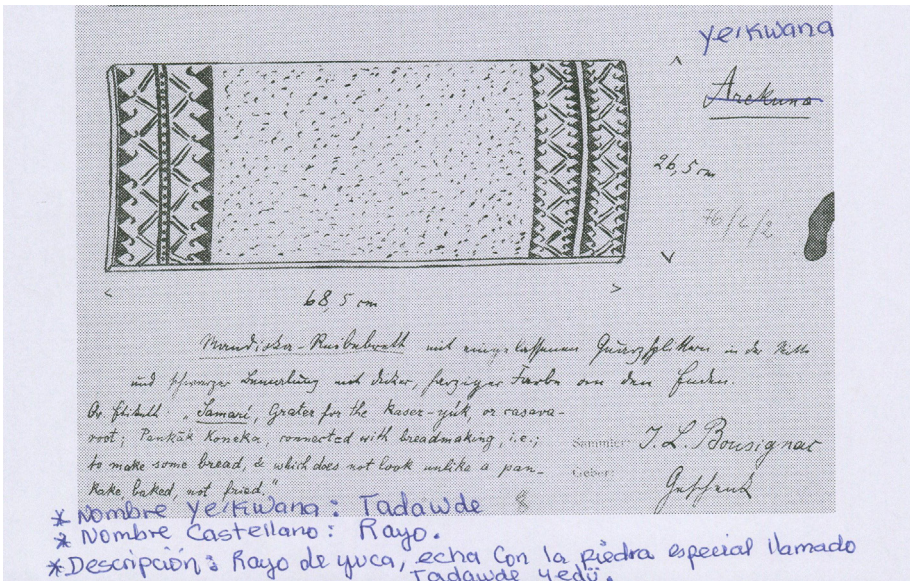 yekwana
Arekuna
26,5 cm
76/2/2
68,5 cm
Mandioka-Reibebrett mit eingelassenen Quarzsplittern in der Mitte
und schwarzer Bemalung mit dicker, harziger Farbe an den Enden.
Or. Etikett: "Samari, Grater for the Kaser-yúk, or casava-
root; Pankāk Koneka, connected with breadmaking, i.e.;
to make some bread, & which does not look unlike a pan-
kake, baked, not fried."
Sammler: J. L. Bousignac
Geber: Geschenk
8
* Nombre yekwana: Tadawde
* Nombre Castellano: Rayo.
* Descripción: Rayo de yuca, echa con la piedra especial llamado
Tadawde yedü.